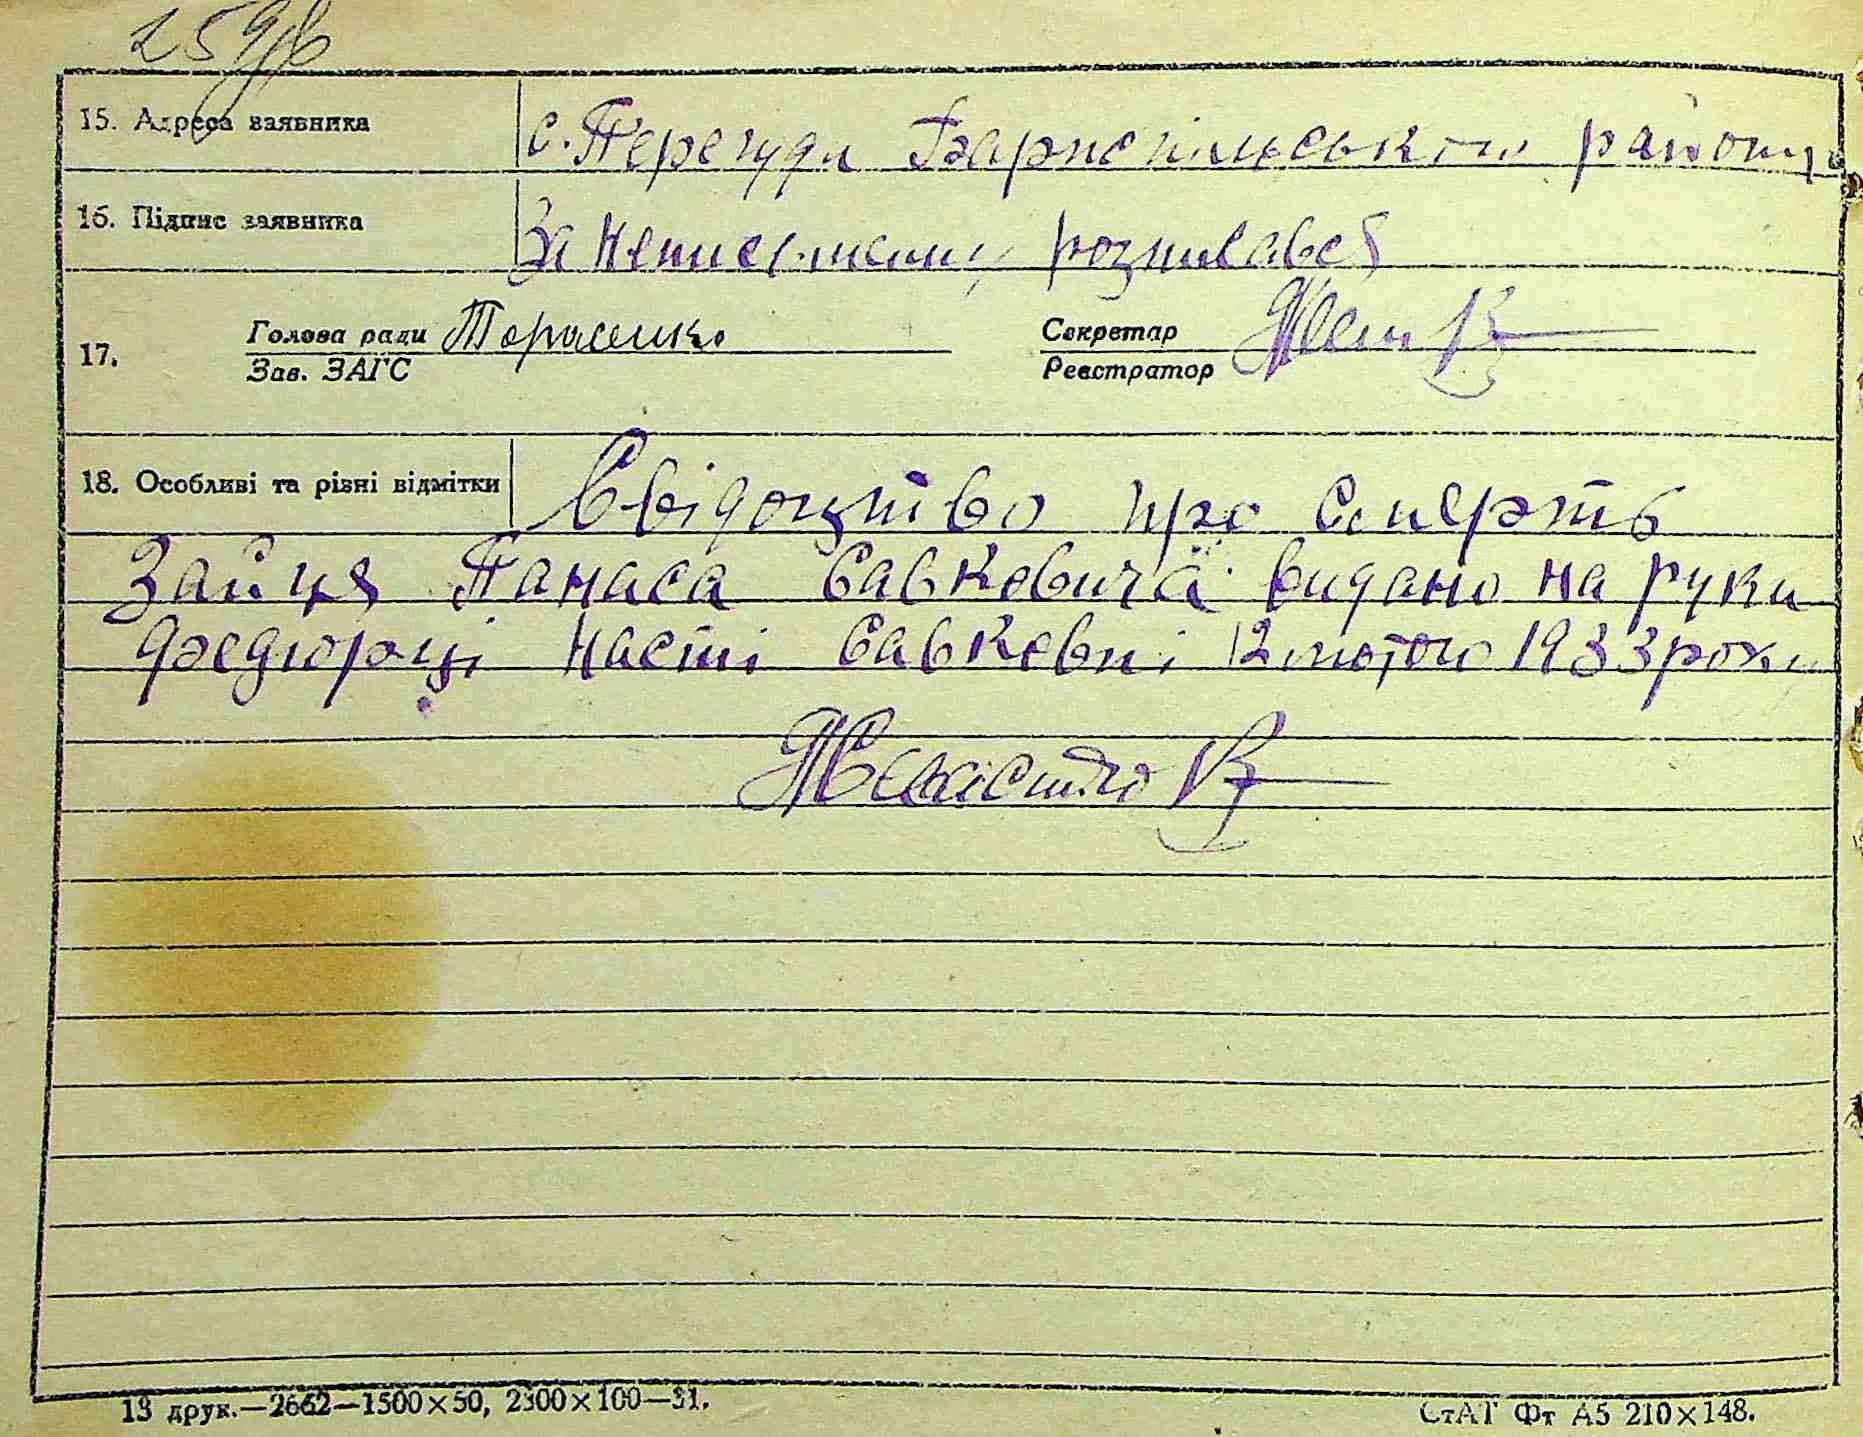 15. Адреса заявника с. Перегуди Бариспільського району
16. Підпис заявника За неписьменну розписавсь
17. Голова ради Тарасенко Секретар
Зав. ЗАГС Реєстратор
18. Особливі та різні відмітки Свідоцтво про смерть
Зайця Панаса Савковича видано на руки
Федюрці Насті Савковні 12 лютого 1933 року
13 друк.—2662—1500×50, 2300×100—31.
СтАТ Фт А5 210×148.